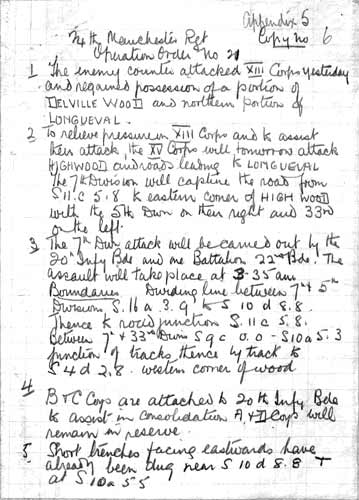 Appendix 5
Copy no 6
24th Manchester Rgt
Operation Order No 21
1 The enemy counter attacked XIII Corps yesterday
and regained possession of a portion of
DELVILLE WOOD and northern portion of
LONGUEVAL.
2 To relieve pressure on XIII Corps and to assist
their attack, the XV Corps will tomorrow attack
HIGHWOOD and roads leading to LONGUEVAL
The 7th Division will capture the road from
S11.c 5.8 to eastern corner of HIGH WOOD
with the 5th Divn on their right and 33rd
on the left.
3 The 7th Div attack will be carried out by the
20th Infy Bde and one Battalion 22nd Bde. The
assault will take place at 3.35 am
Boundaries Dividing line between 7th & 5th
Division S.16 a 3.9 to S 10 d 8.8.
Thence to road junction S.11 c 5.8.
Between 7th & 33rd Divns S 9 c 0.0 - S10a 5.3
junction of tracks thence by track to
S 4 d 2.8. western corner of wood
4 B & C Coys are attached to 20th Infy Bde
to assist in consolidation A & D Coys will
remain in reserve.
5 Short trenches facing eastwards have
already been dug near S 10 d 8.8 +
at S 10a 5 5